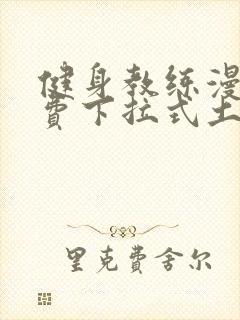 健身教练漫
费下拉式土
里克費舍尔